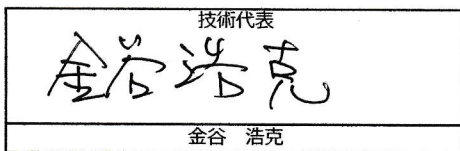 技術代表
金谷浩克
金谷　浩克